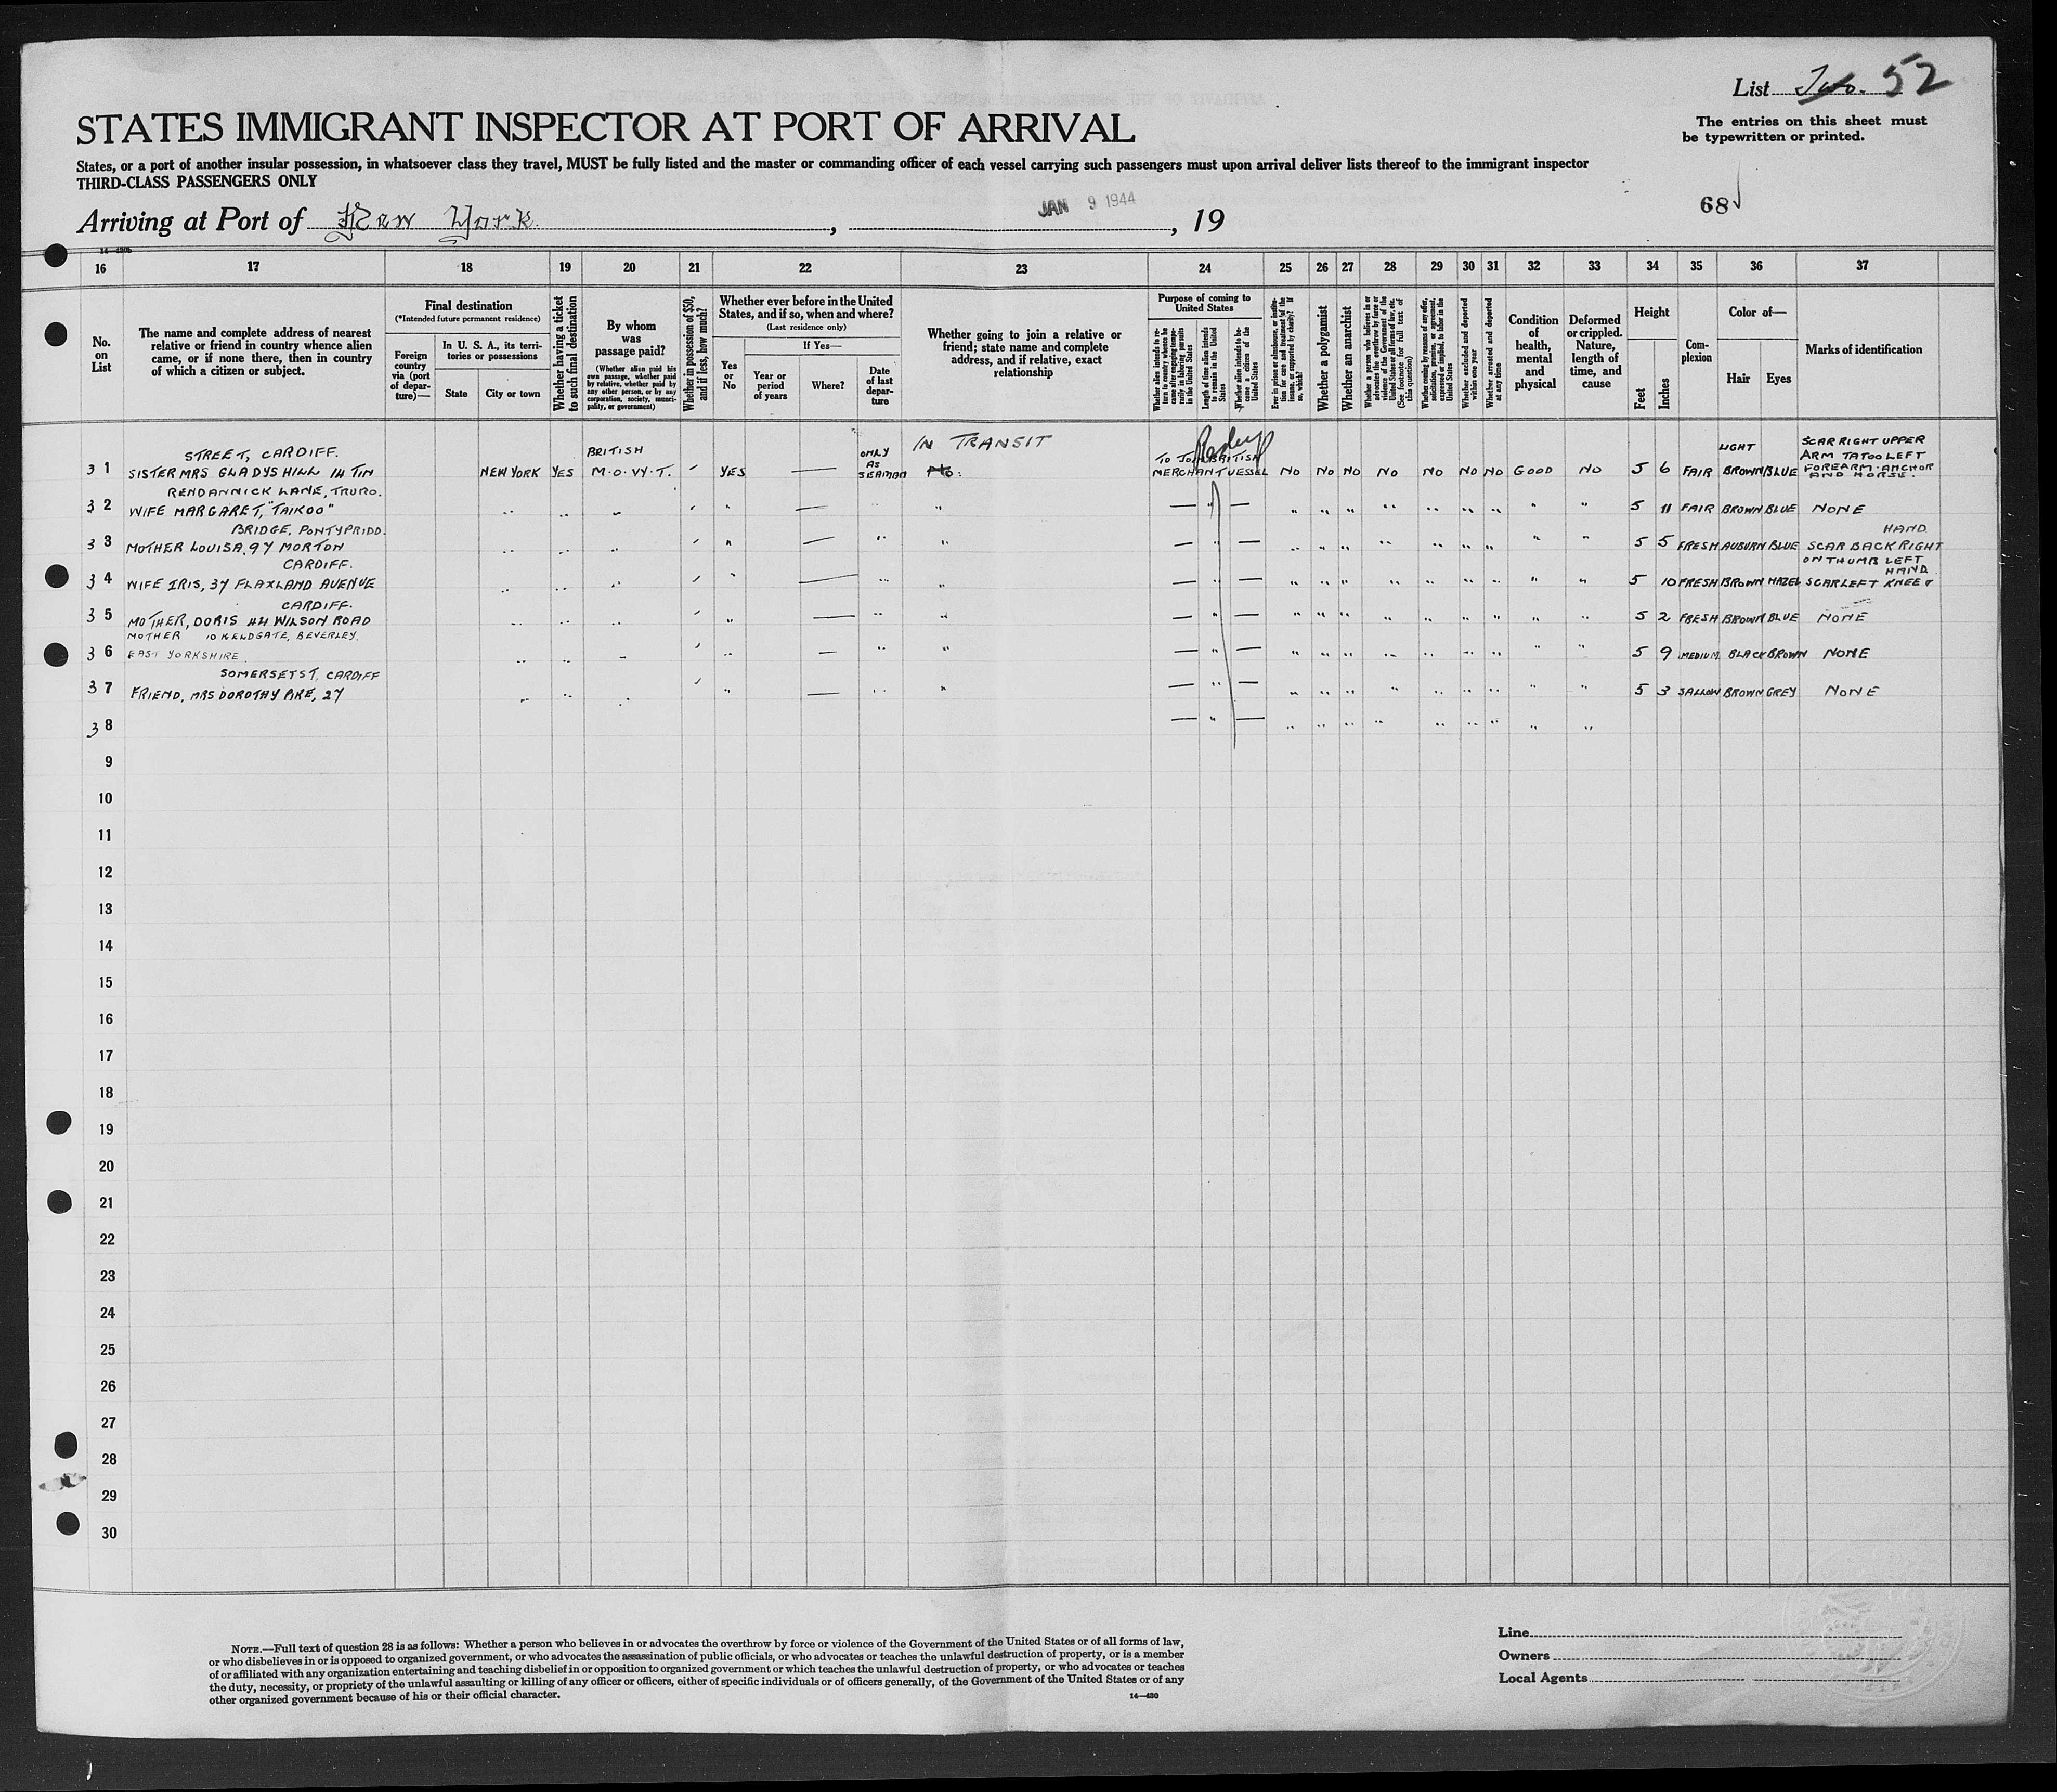 List Two. 52
STATES IMMIGRANT INSPECTOR AT PORT OF ARRIVAL
The entries on this sheet must
be typewritten or printed.
States, or a port of another insular possession, in whatsoever class they travel, MUST be fully listed and the master or commanding officer of each vessel carrying such passengers must upon arrival deliver lists thereof to the immigrant inspector
THIRD-CLASS PASSENGERS ONLY
68
Arriving at Port of New York. , JAN 9 1944 , 19
16 17 18 19 20 21 22 23 24 25 26 27 28 29 30 31 32 33 34 35 36 37
No. on List
The name and complete address of nearest relative or friend in country whence alien came, or if none there, then in country of which a citizen or subject.
Final destination
(*Intended future permanent residence)
Foreign country via (port of departure)—
In U. S. A., its territories or possessions
State
City or town
Whether having a ticket to such final destination
By whom was passage paid?
(Whether alien paid his own passage, whether paid by relative, whether paid by any other person, or by any corporation, society, municipality, or government)
Whether in possession of $50, and if less, how much?
Whether ever before in the United States, and if so, when and where?
(Last residence only)
Yes or No
If Yes—
Year or period of years
Where?
Date of last departure
Whether going to join a relative or friend; state name and complete address, and if relative, exact relationship
Purpose of coming to United States
Whether alien intends to return to country whence he came after engaging temporarily in laboring pursuits in the United States
Length of time alien intends to remain in the United States
Whether alien intends to become a citizen of the United States
Ever in prison or almshouse, or institution for care and treatment of the insane, or supported by charity? If so, which?
Whether a polygamist
Whether an anarchist
Whether a person who believes in or advocates the overthrow by force or violence of the Government of the United States or all forms of law, etc. (See footnote for full text of this question)
Whether coming by reasons of any offer, solicitation, promise, or agreement, expressed or implied, to labor in the United States
Whether excluded and deported within one year
Whether arrested and deported at any time
Condition of health, mental and physical
Deformed or crippled. Nature, length of time, and cause
Height
Feet
Inches
Complexion
Color of—
Hair
Eyes
Marks of identification
STREET, CARDIFF. BRITISH ONLY AS SEAMAN IN TRANSIT TO JOIN BRITISH LIGHT SCAR RIGHT UPPER ARM TATOO LEFT
31 SISTER MRS GLADYS HILL 14 TIN NEW YORK YES M.O.W.T. ✓ YES — No. MERCHANT VESSEL NO NO NO NO NO NO NO GOOD NO 5 6 FAIR BROWN BLUE FOREARM. ANCHOR AND HORSE.
RENDANNICK LANE, TRURO.
32 WIFE MARGARET, "TAIKOO" " " " " — " — " — " " " " " " " " " 5 11 FAIR BROWN BLUE NONE
BRIDGE, PONTYPRIDD. HAND
33 MOTHER LOUISA. 97 MORTON " " " ✓ " — " " — " — " " " " " " " " " 5 5 FRESH AUBURN BLUE SCAR BACK RIGHT
CARDIFF. ON THUMB LEFT HAND
34 WIFE IRIS, 37 FLAXLAND AVENUE " " " ✓ " — " " — " — " " " " " " " " " 5 10 FRESH BROWN HAZEL SCAR LEFT KNEE &
CARDIFF.
35 MOTHER, DORIS 44 WILSON ROAD " " " ✓ " — " " — " — " " " " " " " " " 5 2 FRESH BROWN BLUE NONE
MOTHER 10 KELDGATE, BEVERLEY.
36 EAST YORKSHIRE " " " ✓ " — " " — " — " " " " " " " " " 5 9 MEDIUM BLACK BROWN NONE
SOMERSET ST. CARDIFF
37 FRIEND, MRS DOROTHY 27 " " " ✓ " — " " — " — " " " " " " " " " 5 3 SALLOW BROWN GREY NONE
38 — " — " " " " " " " " "
9
10
11
12
13
14
15
16
17
18
19
20
21
22
23
24
25
26
27
28
29
30
NOTE.—Full text of question 28 is as follows: Whether a person who believes in or advocates the overthrow by force or violence of the Government of the United States or of all forms of law,
or who disbelieves in or is opposed to organized government, or who advocates the assassination of public officials, or who advocates or teaches the unlawful destruction of property, or is a member
of or affiliated with any organization entertaining and teaching disbelief in or opposition to organized government or which teaches the unlawful destruction of property, or who advocates or teaches
the duty, necessity, or propriety of the unlawful assaulting or killing of any officer or officers, either of specific individuals or of officers generally, of the Government of the United States or of any
other organized government because of his or their official character.
14—430
Line
Owners
Local Agents